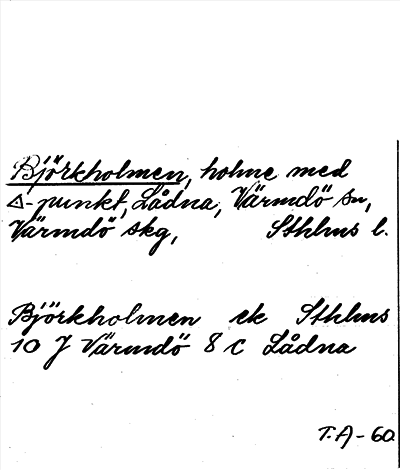 Björkholmen, holme med
∆-punkt, Lådna, Värmdö sn,
Värmdö skg, Sthlms l.
Björkholmen ek Sthlms
10 J Värmdö 8 c Lådna
T.A-60